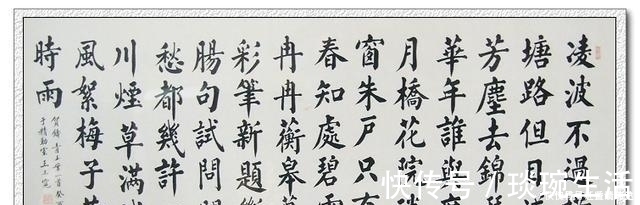 凌波不過
塘路但目
芳塵去錦
華年誰與
月橋花院
窗朱戶只有
春知處碧
冉冉蘅皋
彩筆新題
腸句試問
愁都幾許
川煙草滿
風絮梅子
時雨
賀鑄青玉案一首
快传号 / 琰琬生活